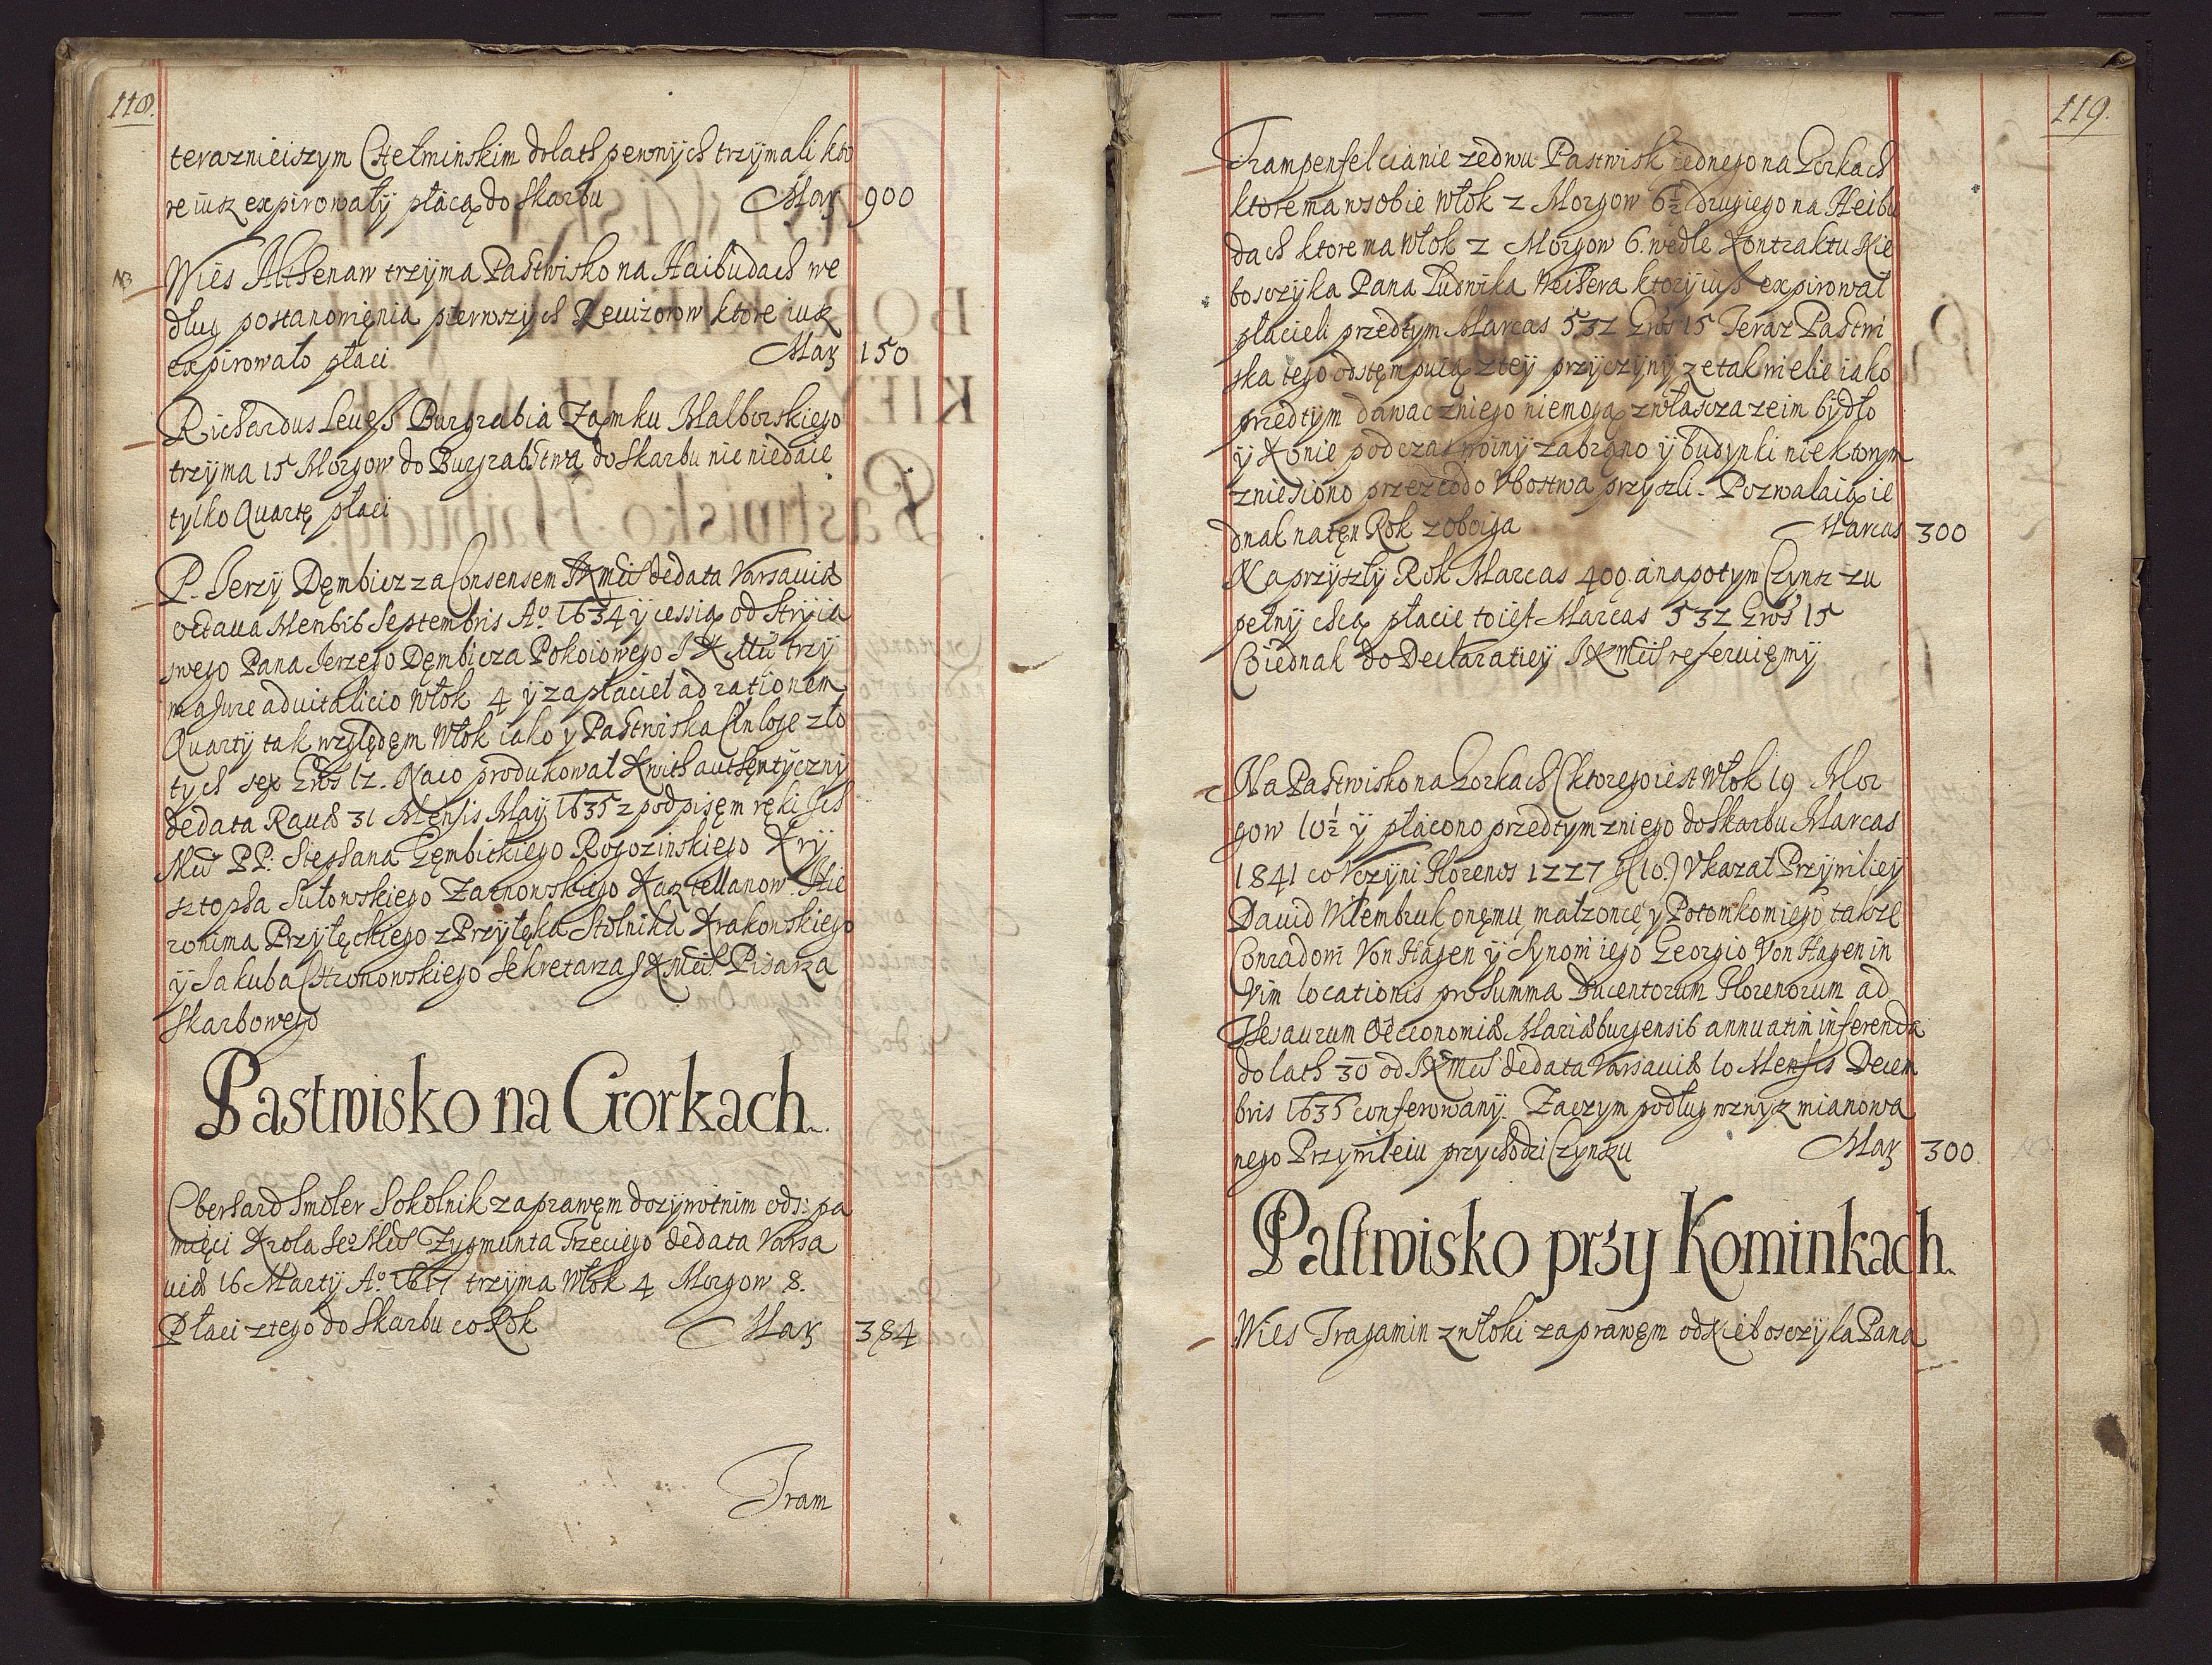 118.
teraznieiszym Chełminskim do lath pewnych trzymali kto
re iusz expirowały płacą do Skarbu Mar 900
NB Wies Althenaw trzyma Pastwisko na Haibudach we
dług postanowięnia pierwszych Rewizorow ktore iusz
expirowało płaci Mar 150
Richardus Leuess Burgrabia Zamku Malborskiego
trzyma 15 Morgow do Burgrabstwa do Skarbu nic niedaie
tylko Quartę płaci
P. Jerzy Dęmbicz za Consensem JKMci de data Varsauiæ
octaua Mensis Septembris Aº 1634 y cessią od Stryia
swego Pana Jerzego Dęmbicza Pokoiowego JKMci trzy
ma Jure aduitalicio Włok 4 y zapłacieł ad rationem
Quarty tak względęm Włok iako y Pastwiska Cinloge zło
tych sex Gros 12. Naco produkował Kwith authentyczny
de data Rauæ 31 Mensis Maij 1635 z podpisęm ręki Jch
Mci PP: Stephana Gęmbickiego Rogozinskiego Kry
sztopha Sułowskiego Zarnowskiego Kaztellanow. Hie
ronima Przyłęckiego z Przyłęka Stolnika Krakowskiego
y Jakuba Chronowskiego Sekretarza JKMci Pisarza
Skarbowego
Pastwisko na Gorkach.
Eberhard Smoler Sokolnik za prawęm dozywotnim od s: pa
mięci Krola Jeº Mci Zygmunta Trzeciego de data Varsa
uiæ 16 Martij Aº 1617 trzyma Włok 4 Morgow 8.
Płaci z tego do Skarbu co Rok Mar 384
Tram
119.
Trampenfelcianie ze dwu Pastwisk iednego na Gorkach
ktore ma wsobie Włok 2 Morgow 6½ drugiego na Heibu
dach ktore ma Włok 2 Morgow 6. wedle Kontraktu Nie
bosczyka Pana Ludwika Weihera ktory iusz expirował
płacieli przedtym Marcas 532 Gros 15 Teraz Pastwi
ska tego odstęmpuią z tey przyczyny ze tak wiele iako
przedtym dawac zniego niemogą zwłascza ze im bydło
y Konie podczas woiny zabrano y budynki niektorym
zniesiono przez co do Vbostwa przyszli. Pozwalaią ie
dnak na tęn Rok z oboiga Marcas 300
Na przyszły Rok Marcas 400. a napotym Czynsz zu
pełny chcą płacic to iest Marcas 532 Gros 15
Co iednak do Declaratiey JKMci referuięmy
Na Pastwisko na Gorkach (ktorego iest Włok 19 Mor
gow 10½ y płacono przedtym zniego do Skarbu Marcas
1841 co Vczyni Florenos 1227 g(10.) Vkazał Przywiley
Dauid Wilembruk onęmu małzonce y Potomkom iego takze
Conradowi Von Hagen y Synowi iego Georgio Von Hagen in
Vim locationis pro Summa Ducentorum Florenorum ad
Thesaurum Oeconomiæ Mariæburgensis annuatim inferenda
do lath 30 od JKMci de data Varsauiæ 10 Mensis Decem
bris 1635 conferowany. Zaczym podług wzwysz mianowa
nego Przywileiu przychodzi Czynszu Mar 300.
Pastwisko przy Kominkach.
Wies Tragamin z włoki za prawęm od Nieboszczyka Pana